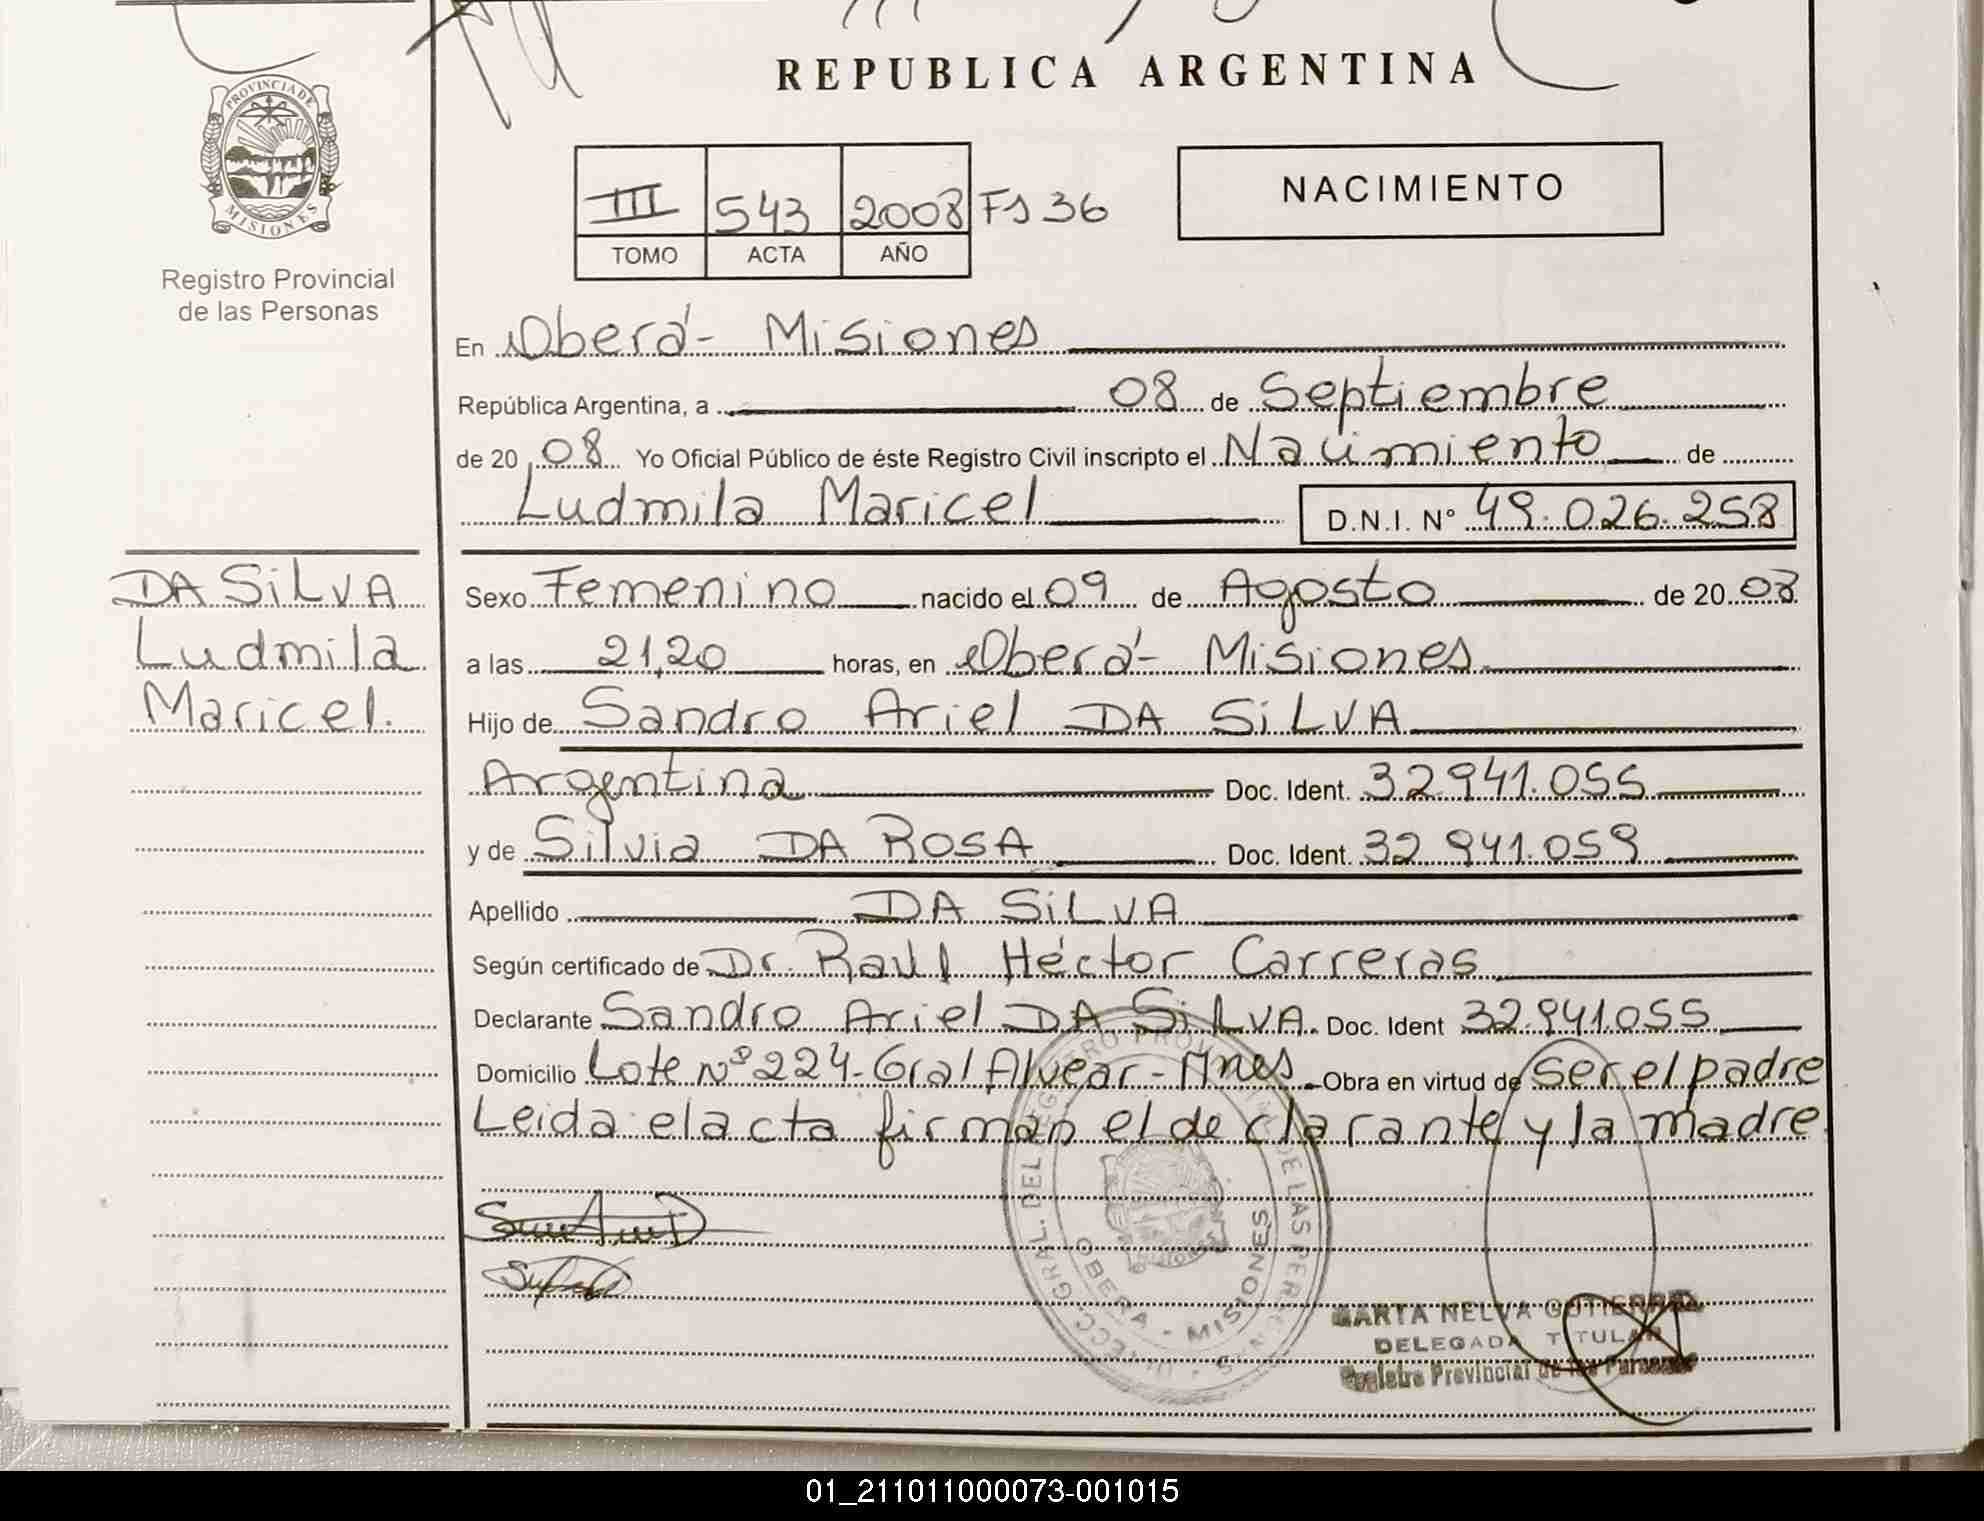 REPUBLICA ARGENTINA
PROVINCIA DE
MISIONES
Registro Provincial
de las Personas
III 543 2008 Fs 36
TOMO ACTA AÑO
NACIMIENTO
En Oberá - Misiones
República Argentina, a 08 de Septiembre
de 20 08 Yo Oficial Público de éste Registro Civil inscripto el Nacimiento de
Ludmila Maricel D.N.I. N° 49.026.258
DA SiLVA
Ludmila
Maricel.
Sexo Femenino nacido el 09 de Agosto de 20 08
a las 21,20 horas, en Oberá - Misiones
Hijo de Sandro Ariel DA SiLVA
Argentina Doc. Ident. 32941.055
y de Silvia DA ROSA Doc. Ident. 32 941.059
Apellido DA SiLVA
Según certificado de Dr. Raul Héctor Carreras
Declarante Sandro Ariel DA SiLVA. Doc. Ident 32.941.055
Domicilio Lote N° 224 - Gral Alvear - Mnes Obra en virtud de Ser el padre
Leida el acta firman el declarante y la madre.
OBERA - MISIONES
MARTA NELVA GUTIERREZ
DELEGADA TITULAR
Registro Provincial de las Personas
01_211011000073-001015